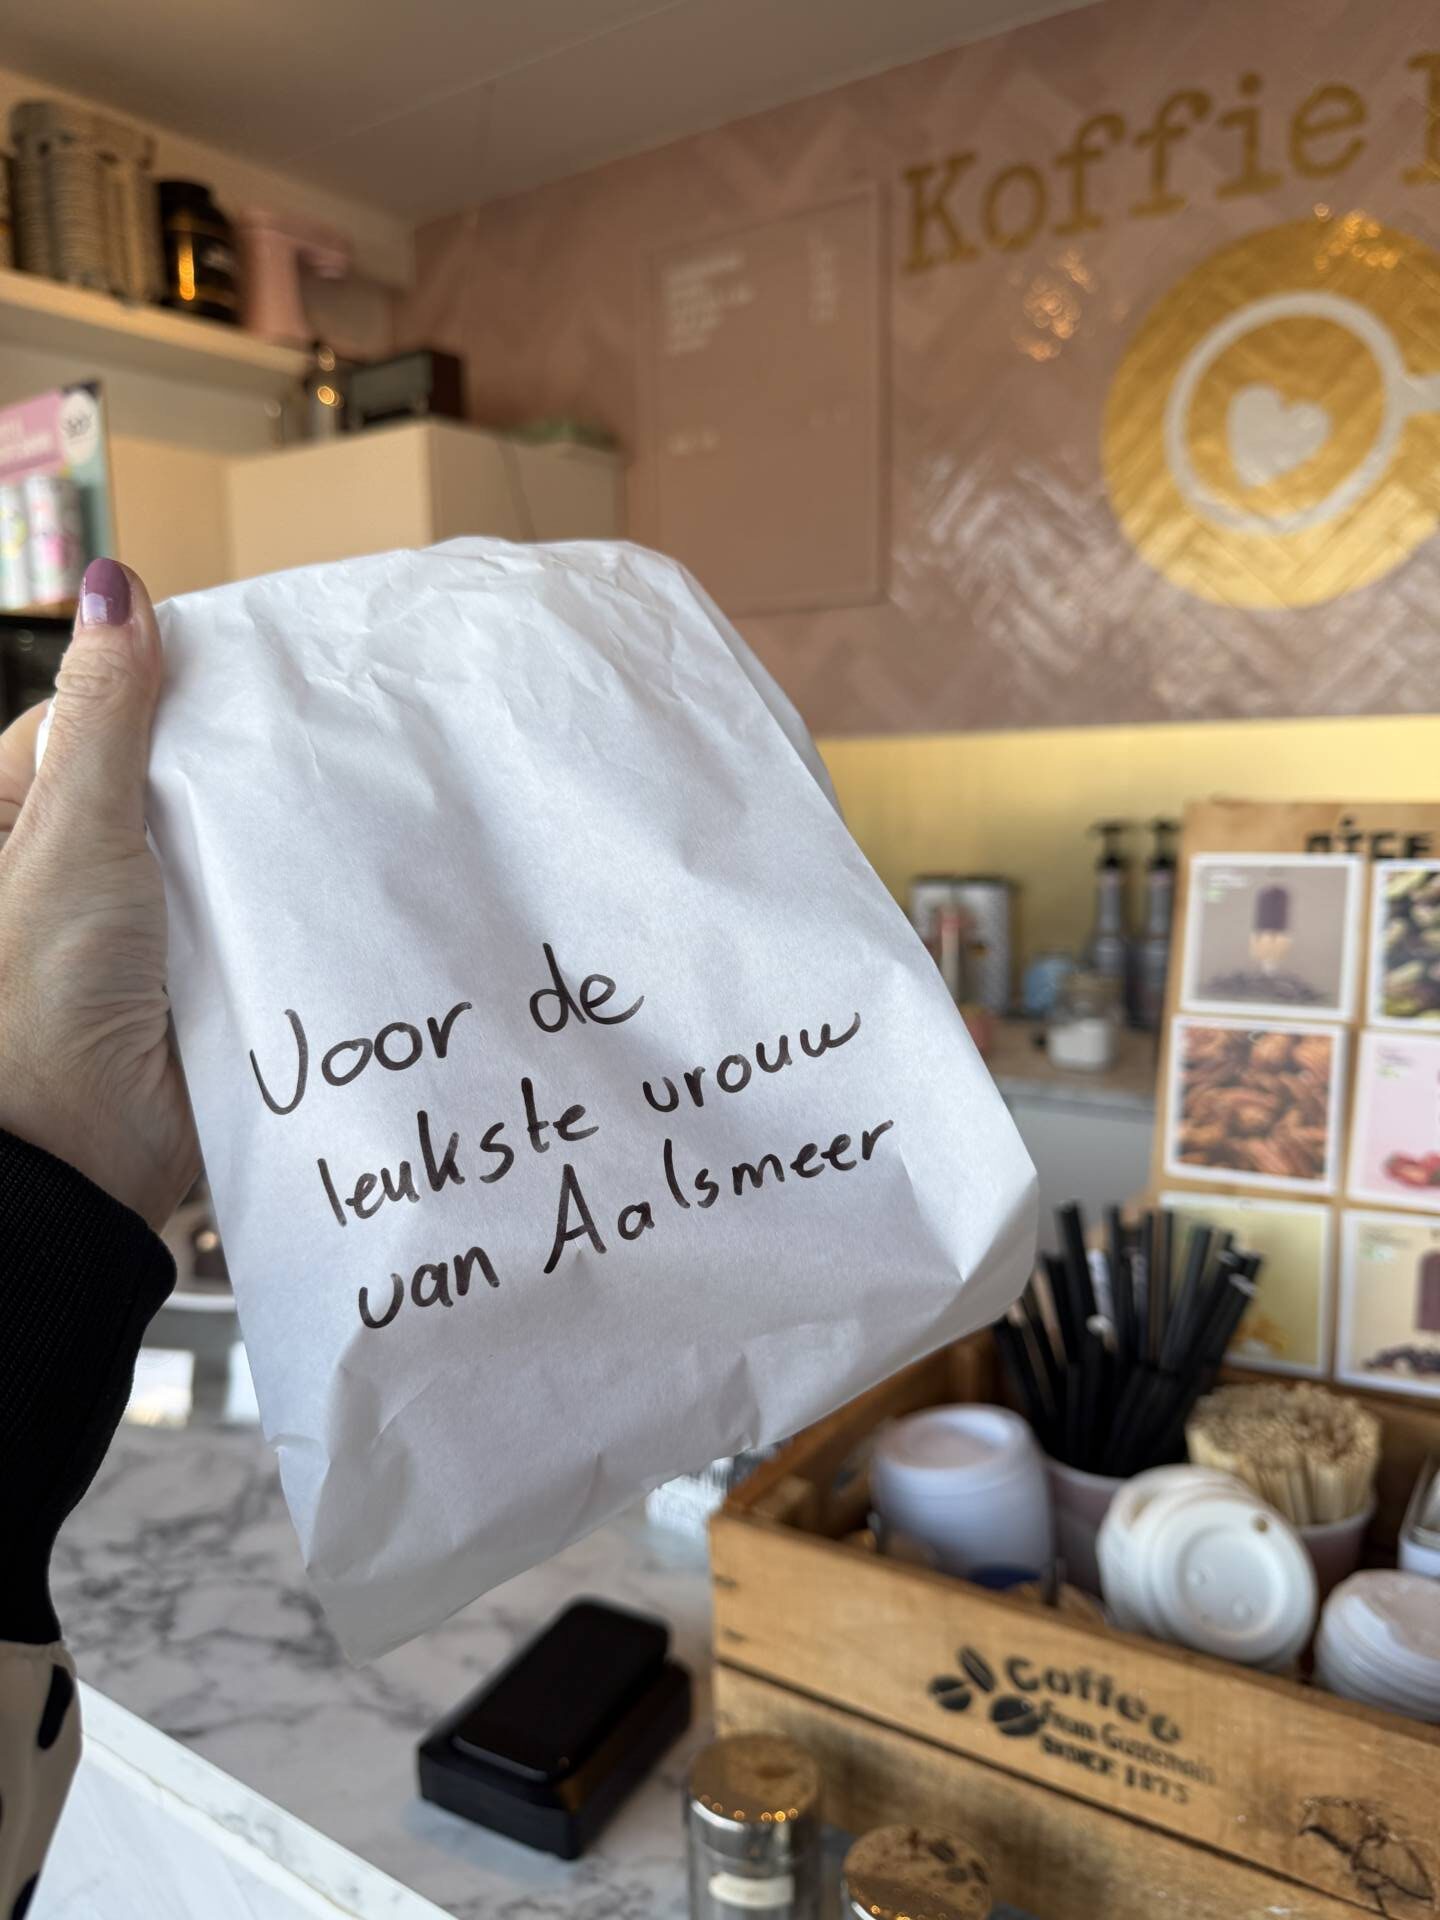 Koffie
nice
Voor de
leukste vrouw
van Aalsmeer
Coffee
from Guatemala
SINCE 1873